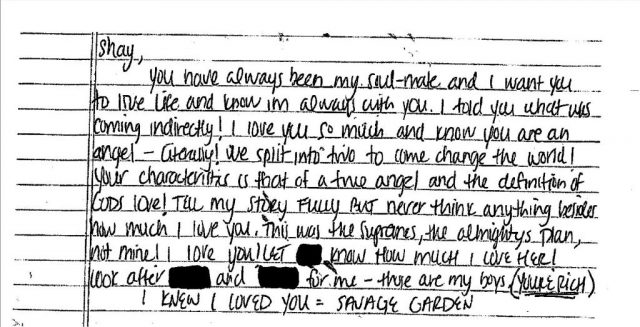 Shay,
You have always been my soul-mate and I want you
to love life and know im always with you. I told you what was
coming indirectly! I love you so much and know you are an
angel - literally! We split into two to come change the world!
Your characteristics is that of a true angel and the definition of
GODS love! TELL my story FULLY BUT never think anything besides
how much I love you. This was the supremes, the almightys plan,
not mine! I love you! LET know HOW MUCH I LOVE HER!
look after and for me - those are my boys. (YOU'RE RICH)
I KNEW I LOVED YOU = SAVAGE GARDEN